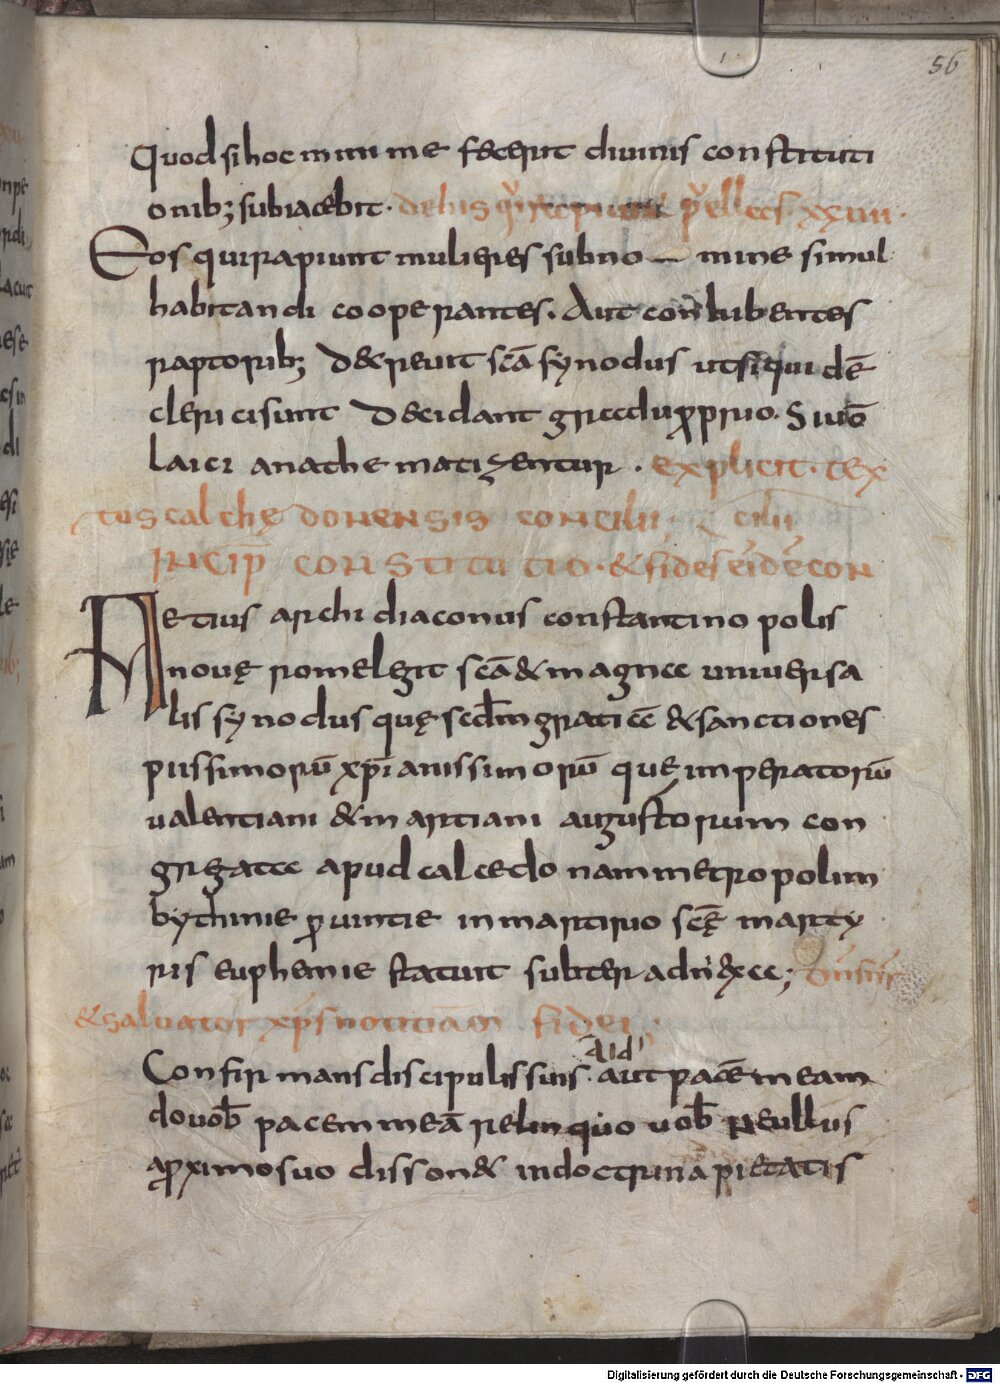 56
Quod si hoc minime fecerint diuinis constituti
onib; subiacebit. de his qui rapiunt puellas. xxuii.
Eos qui rapiunt mulieres sub no— mine simul
habitandi cooperantes. Aut conhibentes
raptorib; decreuit scā synodus ut siqui dē
clerici sunt decidant gradu ꝓprio. Si uō
laici anathematizentur. explicit. tex
tus calchędonensis concilii
INCIP̄ CONSTITUTIO. & fides eiusdē con cilii
Aetius archidiaconus constantinopolis
nouę rome legit scā & magna uniuersa
lis synodus quę secd̄m gratiā & sanctiones
piissimorū xp̄ianissimorū quę imperatorū
ualentiani & martiani augustorum con
gregata apud calcedonam metropolim
bythinie ꝓuintie in martirio scę̄ marty
ris euphemie statuit subter adnexa;
& saluator xp̄s notitiam fidei
Confirmans discipulis suis. aut pacē meam
do uob̄ pacem meā relinquo uob̄ ut nullus
a ꝓximo suo disson& in doctrina pietatis
Digitalisierung gefördert durch die Deutsche Forschungsgemeinschaft - DFG